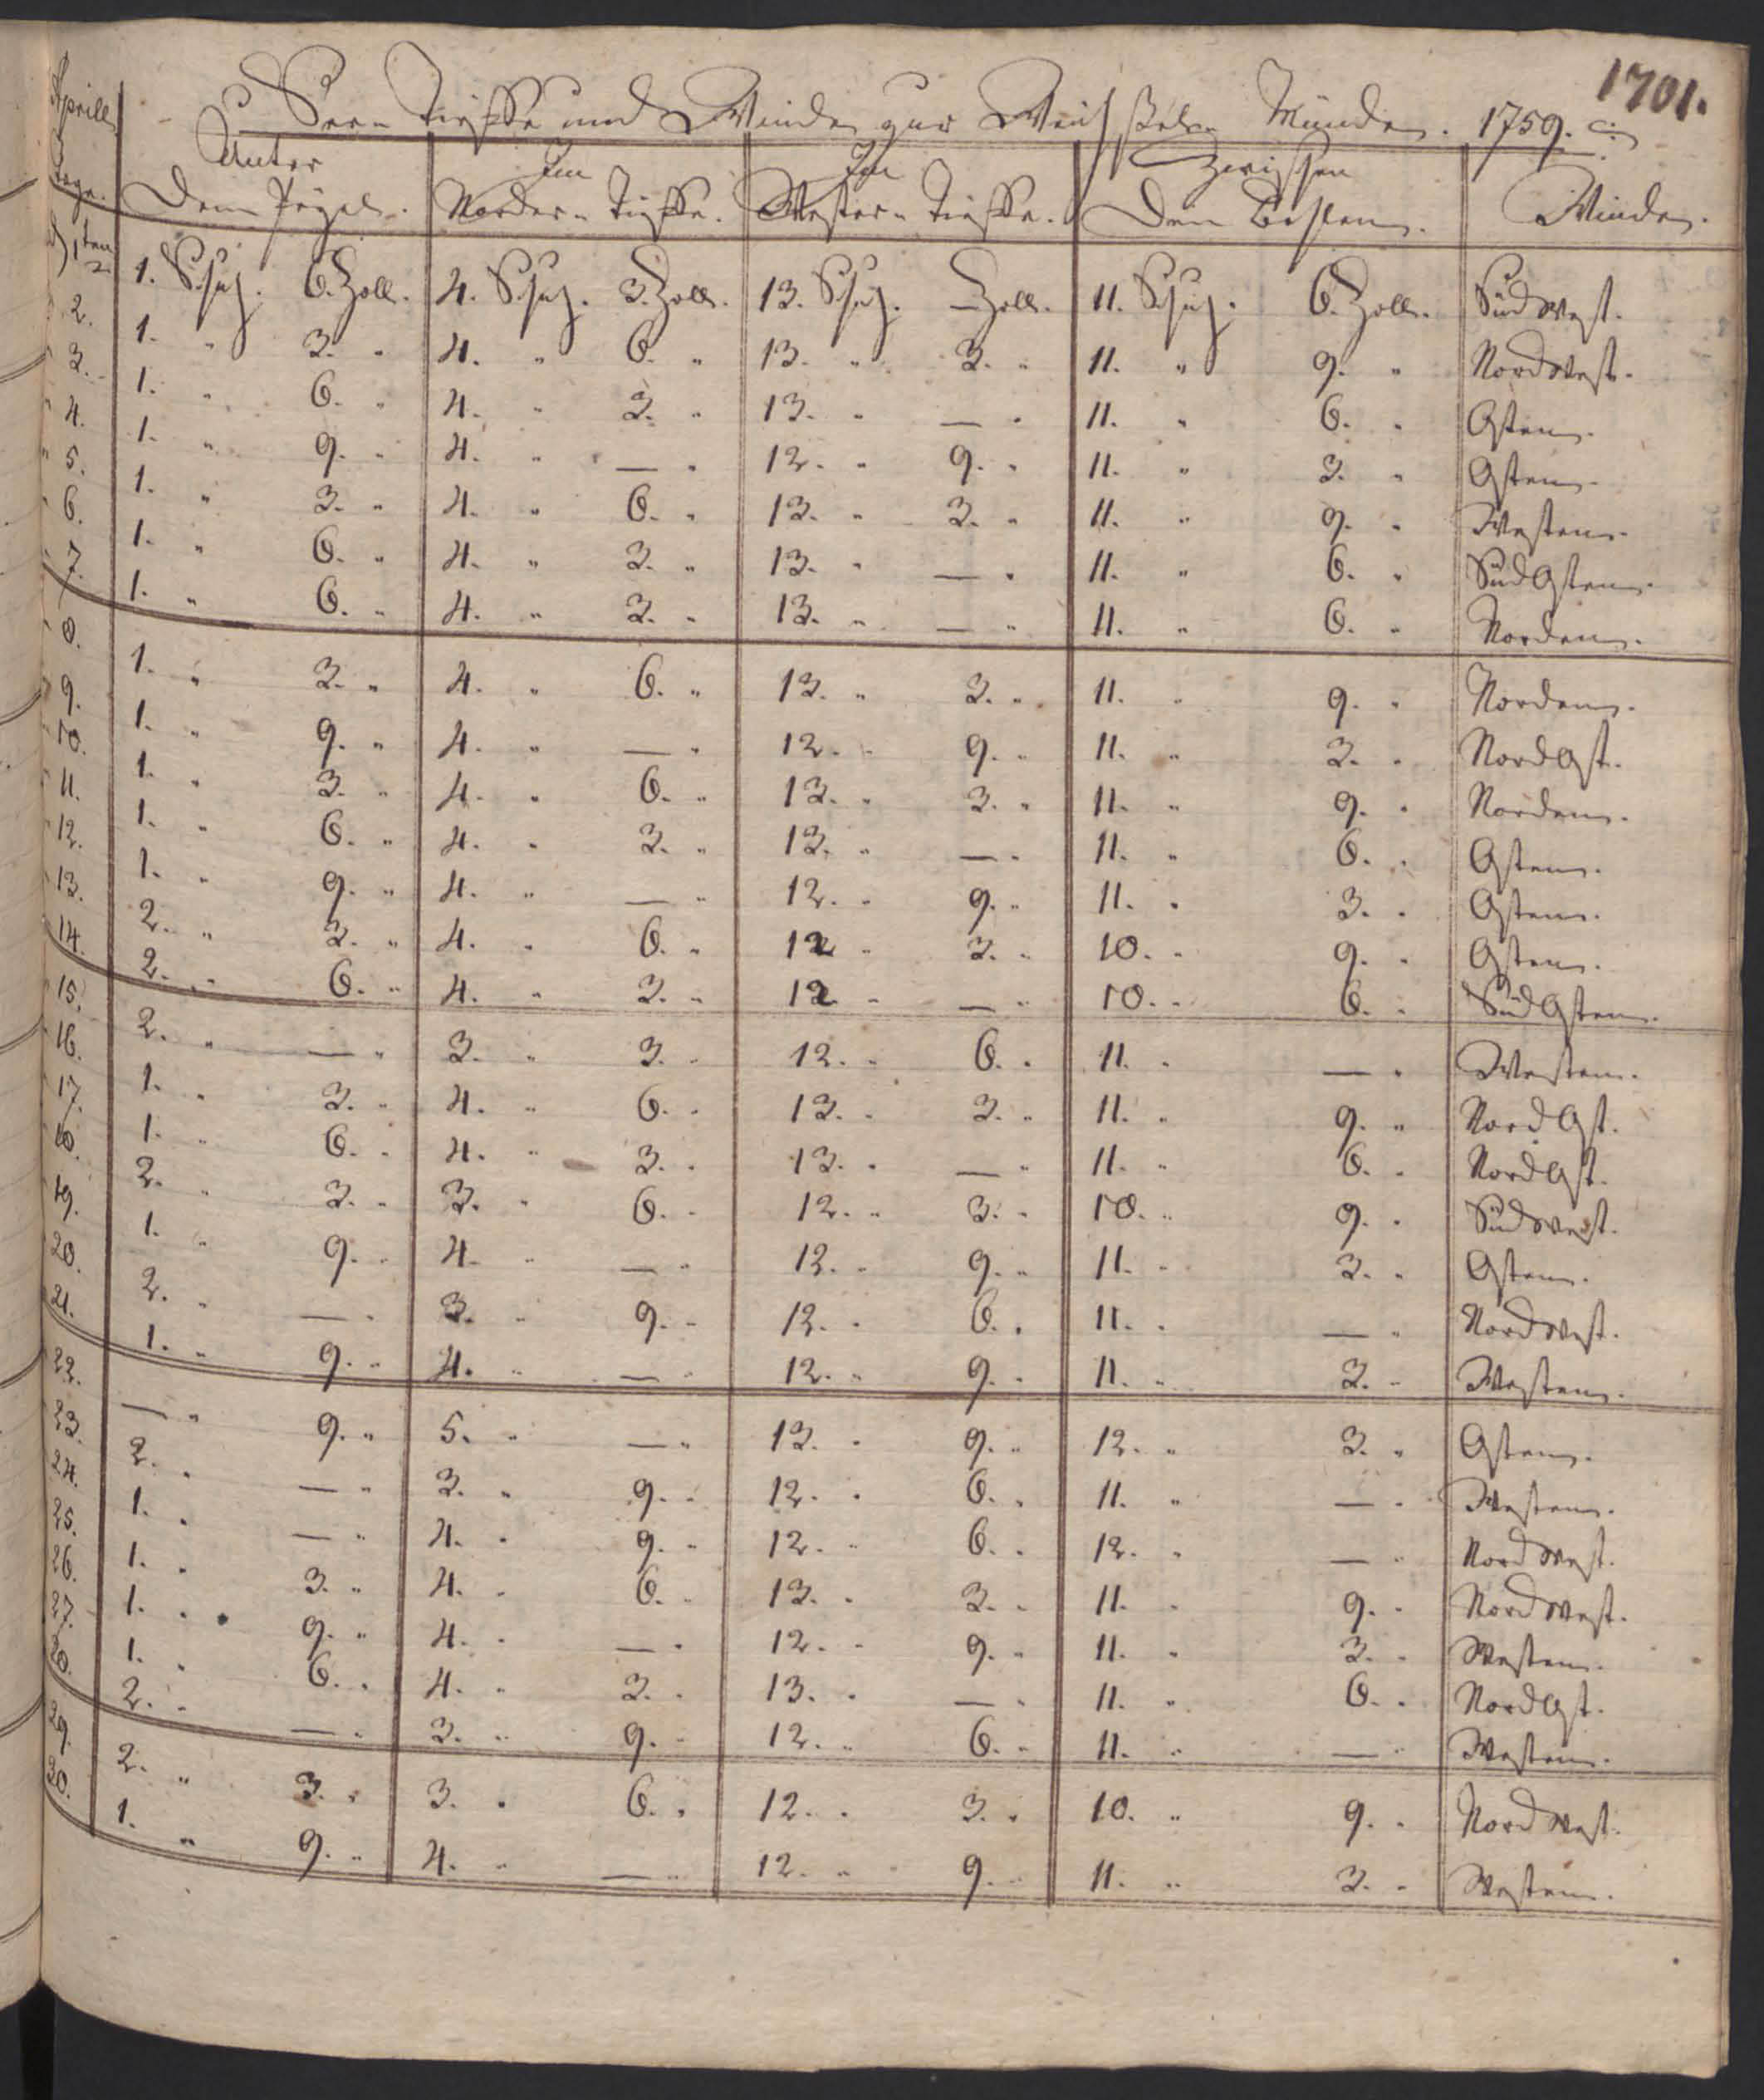 1701.
Aprill See-Tieffe und Winde zur Weichselmünde. 1759.
Tage. Unter Im Im Zwischen
Dem Pegel. Norder-Tieffe. Wester-Tieffe. Den Kisten. Winde.
1ten 1. Schuh. 6. Zoll. 4. Schuh. 3. Zoll. 13. Schuh. — Zoll. 11. Schuh. 6. Zoll. Südwest.
2. 1. " 3. " 4. " 6. " 13. " 3. " 11. " 9. " Nordwest.
3. 1. " 6. " 4. " 3. " 13. " — " 11. " 6. " Osten.
4. 1. " 9. " 4. " — " 12. " 9. " 11. " 3. " Osten.
5. 1. " 3. " 4. " 6. " 13. " 3. " 11. " 9. " Westen.
6. 1. " 6. " 4. " 3. " 13. " — " 11. " 6. " SüdOsten.
7. 1. " 6. " 4. " 3. " 13. " — " 11. " 6. " Norden.
8. 1. " 3. " 4. " 6. " 13. " 3. " 11. " 9. " Norden.
9. 1. " 9. " 4. " — " 12. " 9. " 11. " 3. " NordOst.
10. 1. " 3. " 4. " 6. " 13. " 3. " 11. " 9. " Norden.
11. 1. " 6. " 4. " 3. " 13. " — " 11. " 6. " Osten.
12. 1. " 9. " 4. " — " 12. " 9. " 11. " 3. " Osten.
13. 2. " 3. " 4. " 6. " 12 " 3. " 10. " 9. " Osten.
14. 2. " 6. " 4. " 3. " 12 " — " 10. " 6. " SüdOsten.
15. 2. " — " 3. " 3. " 12. " 6. " 11. " — " Westen.
16. 1. " 3. " 4. " 6. " 13. " 3. " 11. " 9. " NordOst.
17. 1. " 6. " 4. " 3. " 13. " — " 11. " 6. " NordOst.
18. 2. " 3. " 3. " 6. " 12. " 3. " 10. " 9. " Südwest.
19. 1. " 9. " 4. " — " 12. " 9. " 11. " 3. " Osten.
20. 2. " — " 3. " 9. " 12. " 6. " 11. " — " Nordwest.
21. 1. " 9. " 4. " — " 12. " 9. " 11. " 3. " Westen.
22. — " 9. " 5. " — " 13. " 9. " 12. " 3. " Osten.
23. 2. " — " 3. " 9. " 12. " 6. " 11. " — " Westen.
24. 1. " — " 4. " 9. " 12. " 6. " 12. " — " Nordwest.
25. 1. " 3. " 4. " 6. " 13. " 3. " 11. " 9. " Nordwest.
26. 1. " 9. " 4. " — " 12. " 9. " 11. " 3. " Westen.
27. 1. " 6. " 4. " 3. " 13. " — " 11. " 6. " NordOst.
28. 2. " — " 3. " 9. " 12. " 6. " 11. " — " Westen.
29. 2. " 3. " 3. " 6. " 12. " 3. " 10. " 9. " Nordwest.
30. 1. " 9. " 4. " — " 12. " 9. " 11. " 3. " Westen.